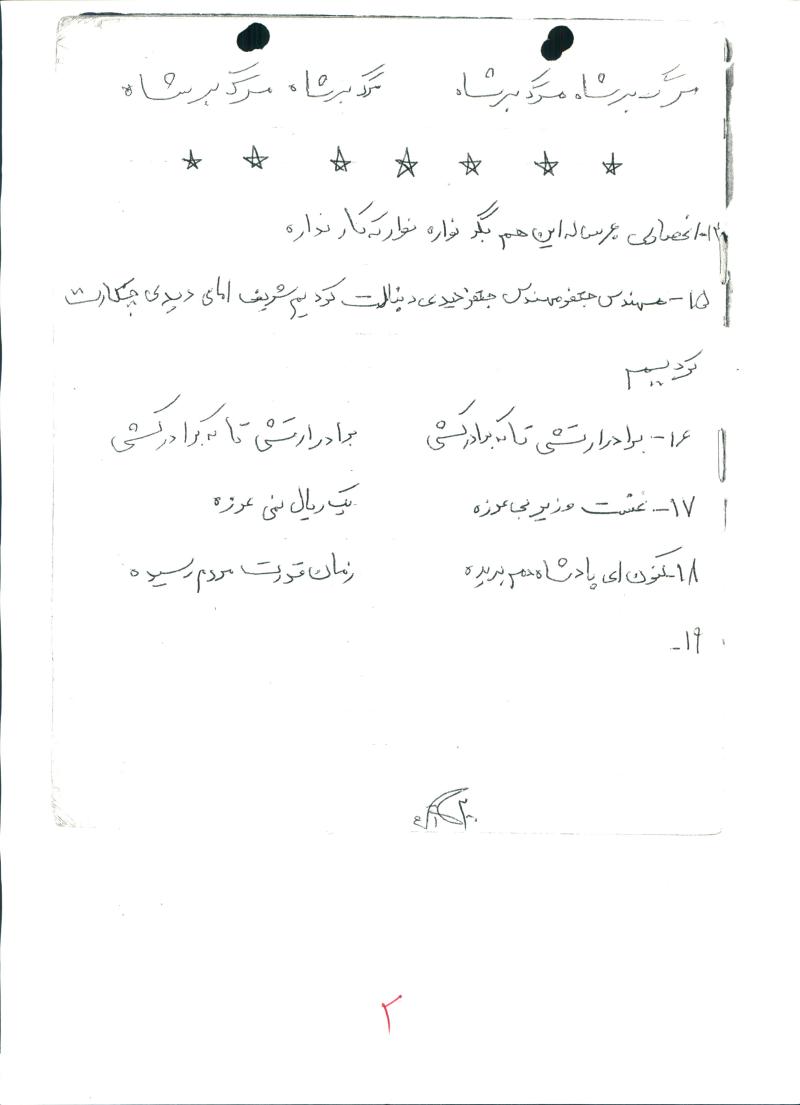 مرگ بر شاه مرگ بر شاه مرگ بر شاه مرگ بر شاه
این هم بگو نواره نوار که پا نداره
۱۵- مهندس جعفر مهندس جعفر دیدی دنبالت کردیم شریف امامی دیدی چکارت
کردیم
۱۶- برادر ارتشی تا به کی برادرکشی برادر ارتشی تا به کی برادرکشی
۱۷- نخست وزیر بی عرزه یک ریال نمی عرزه
۱۸- کنون ای پادشاه دم بریده زمان قدرت مردم رسیده
۱۹-
۲